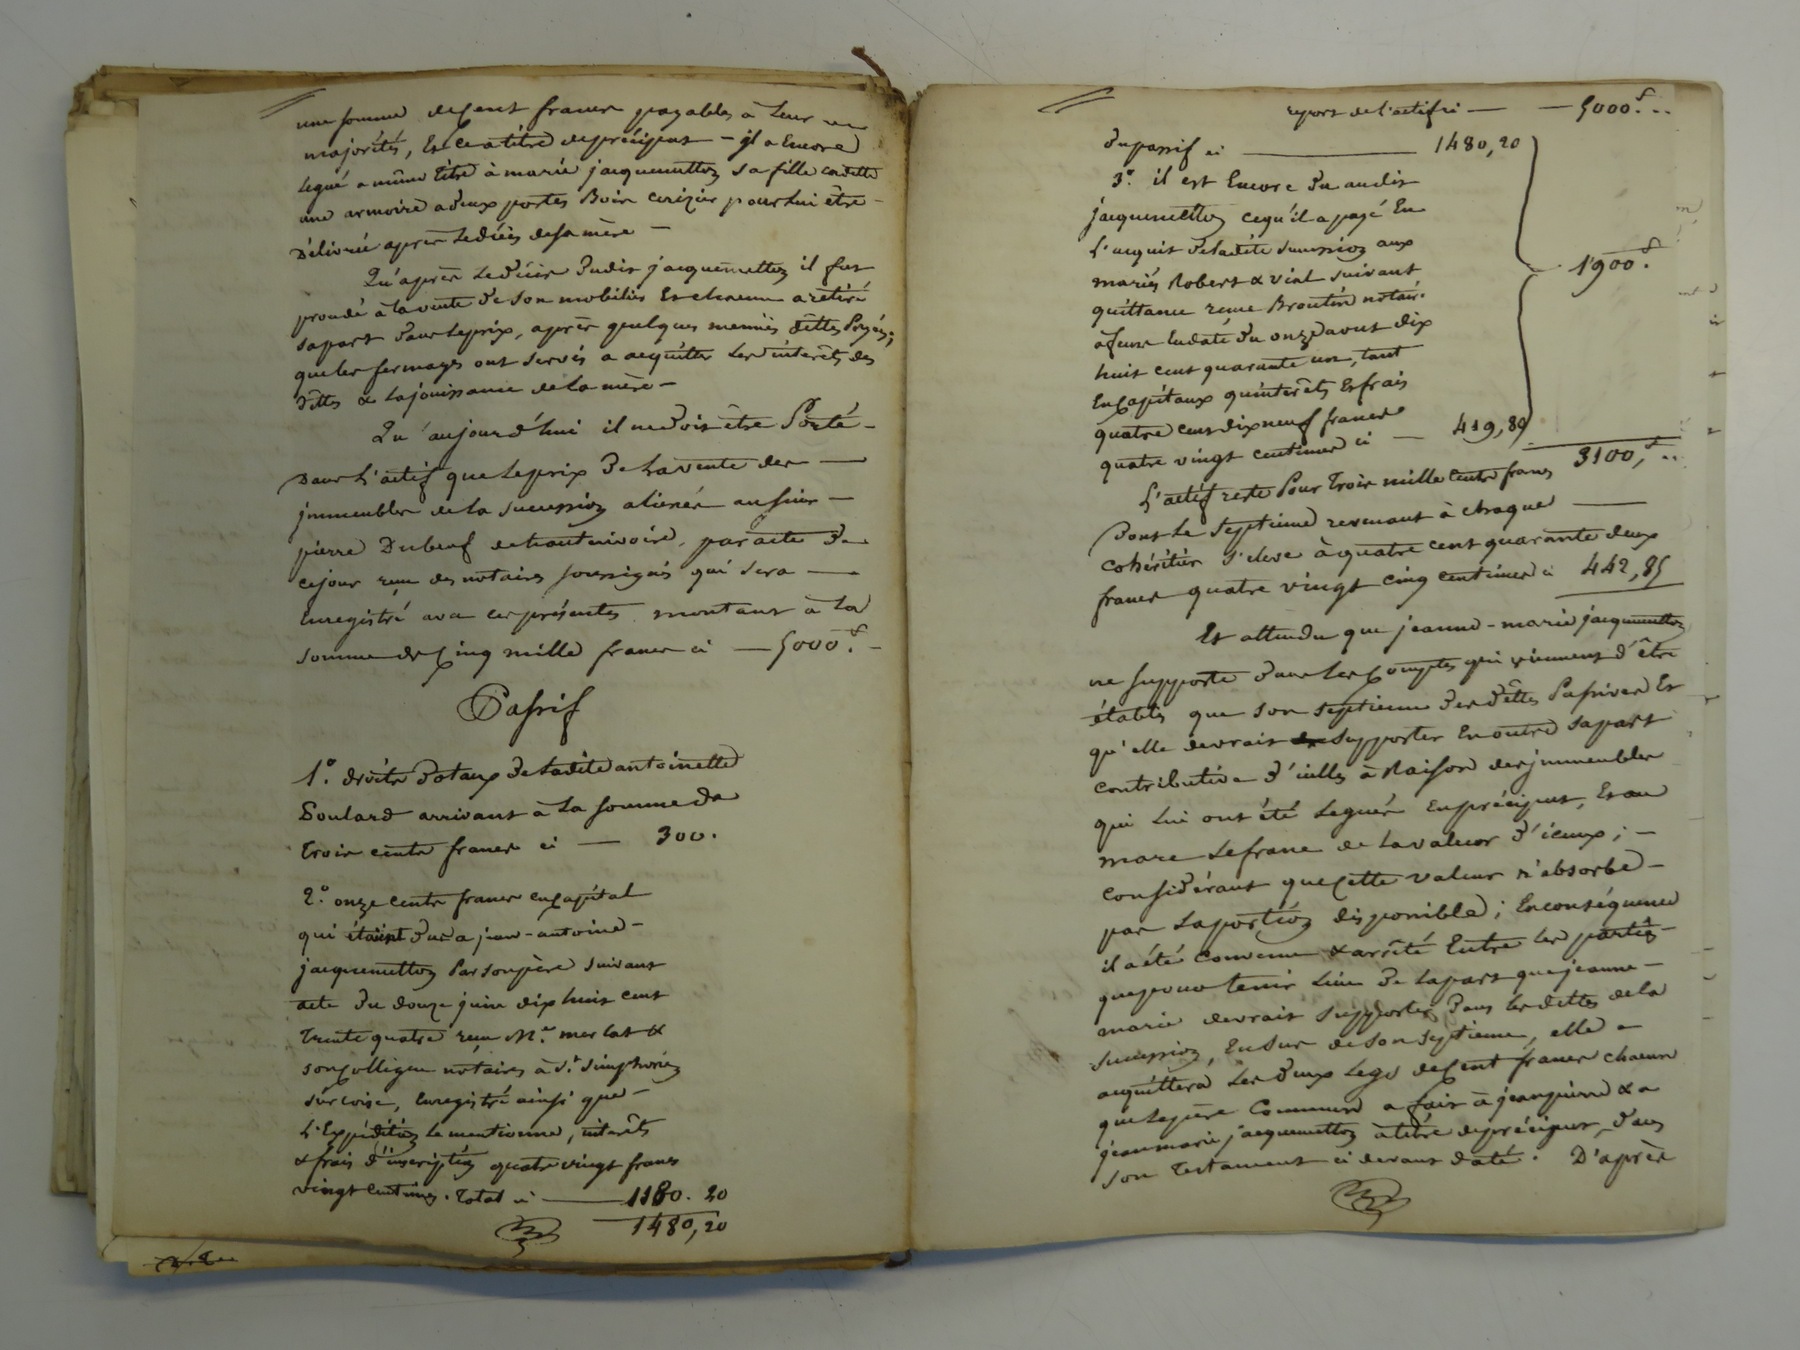 une somme de Cent francs payables à leur
majorités, Et ce a titre de préciput — il a Encore
legué a même titre à marie jacquemetton sa fille cadette
une armoire a deux portes Bois cerizier pour lui être
Délivrée après le décès de sa mère —
Qu'après le décès dudit jacquemetton il fut
procédé à la vente de son mobilier Et chacun a retiré
sa part dans le prix, après quelques menues dettes Payées;
que les fermages ont servis a acquitter les intérêts des
dettes & la jouissance de la mère —
Qu'aujourd'hui il ne doit être Porté —
Dans l'actif que le prix de la vente des —
jmmeubles de la succession alienés au sieur —
pierre Dubeuf de hauterivoire, par acte de
ce jour reçu des notaires soussignés qui sera —
Enregistré avec ces présentes montant à la
somme de Cinq mille francs ci — 5000.f —
Passif
1.° droits dotaux de ladite antoinette
Goulard arrivant à la somme de
trois cents francs ci — 300.
2.° onze cents francs en Capital
qui étaient dus a jean-antoine —
jacquemetton Par son père suivant
acte du douze juin dix huit cent
trente quatre reçu M.e merlat &
son Collègue notaires à St. Simphorien
sur coise, Enregistré ainsi que —
L'Expédition le mentionne, intérêts
& frais d'inscription quatre vingt francs
vingt centimes. Total ci — 1180. 20
1480,20
report de l'actif ci — — 5000.f ..
du passif ci — 1480,20
3.° il est Encore du audit
jacquemetton ce qu'il a payé En
L'acquit de ladite succession aux
mariés Robert & vial suivant
quittance reçue Broutin notaire
à feurs En date du onze avout dix
huit cent quarante un, tant
En Capitaux qu'intérêts Et frais
quatre cent dix neuf francs
quatre vingt centimes ci — 419,80
1900.f
3100,f ..
L'actif reste Pour trois mille Cents francs
Dont le septieme revenant à chaque —
cohéritier s'eleve à quatre cent quarante deux
francs quatre vingt cinq centimes ci 442,85
Et attendu que jeanne-marie jacquemetton
ne supporte dans les Comptes qui viennent d'être
établis que son septieme des dettes Passives Et
qu'elle devrait supporter En outre sa part
contributive d'icelles à Raison des jmmeubles
qui lui ont été legués En préciput, Et au
marc le franc de la valeur d'iceux; —
considérant que Cette valeur n'absorbe —
pas la portion disponible; En conséquence
il a été convenu & arrêté Entre les parties —
que pour tenir lieu de la part que jeanne —
marie devrait supporter dans les dettes de la
succession, En sus de son septieme, elle —
acquittera les deux legs de Cent francs chacun
que le père Commun a fait à jean pierre & a
jean marie jacquemetton à titre de préciput, dans
son testament ci devant daté. D'après